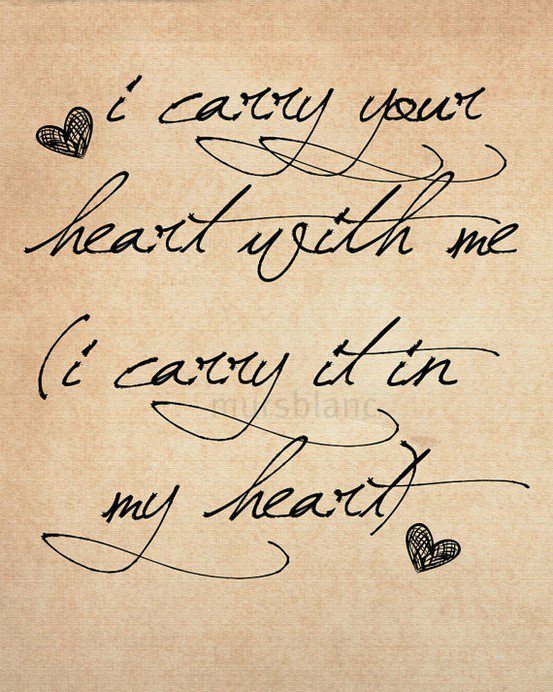 i carry your
heart with me
(i carry it in
mursblanc
my heart)